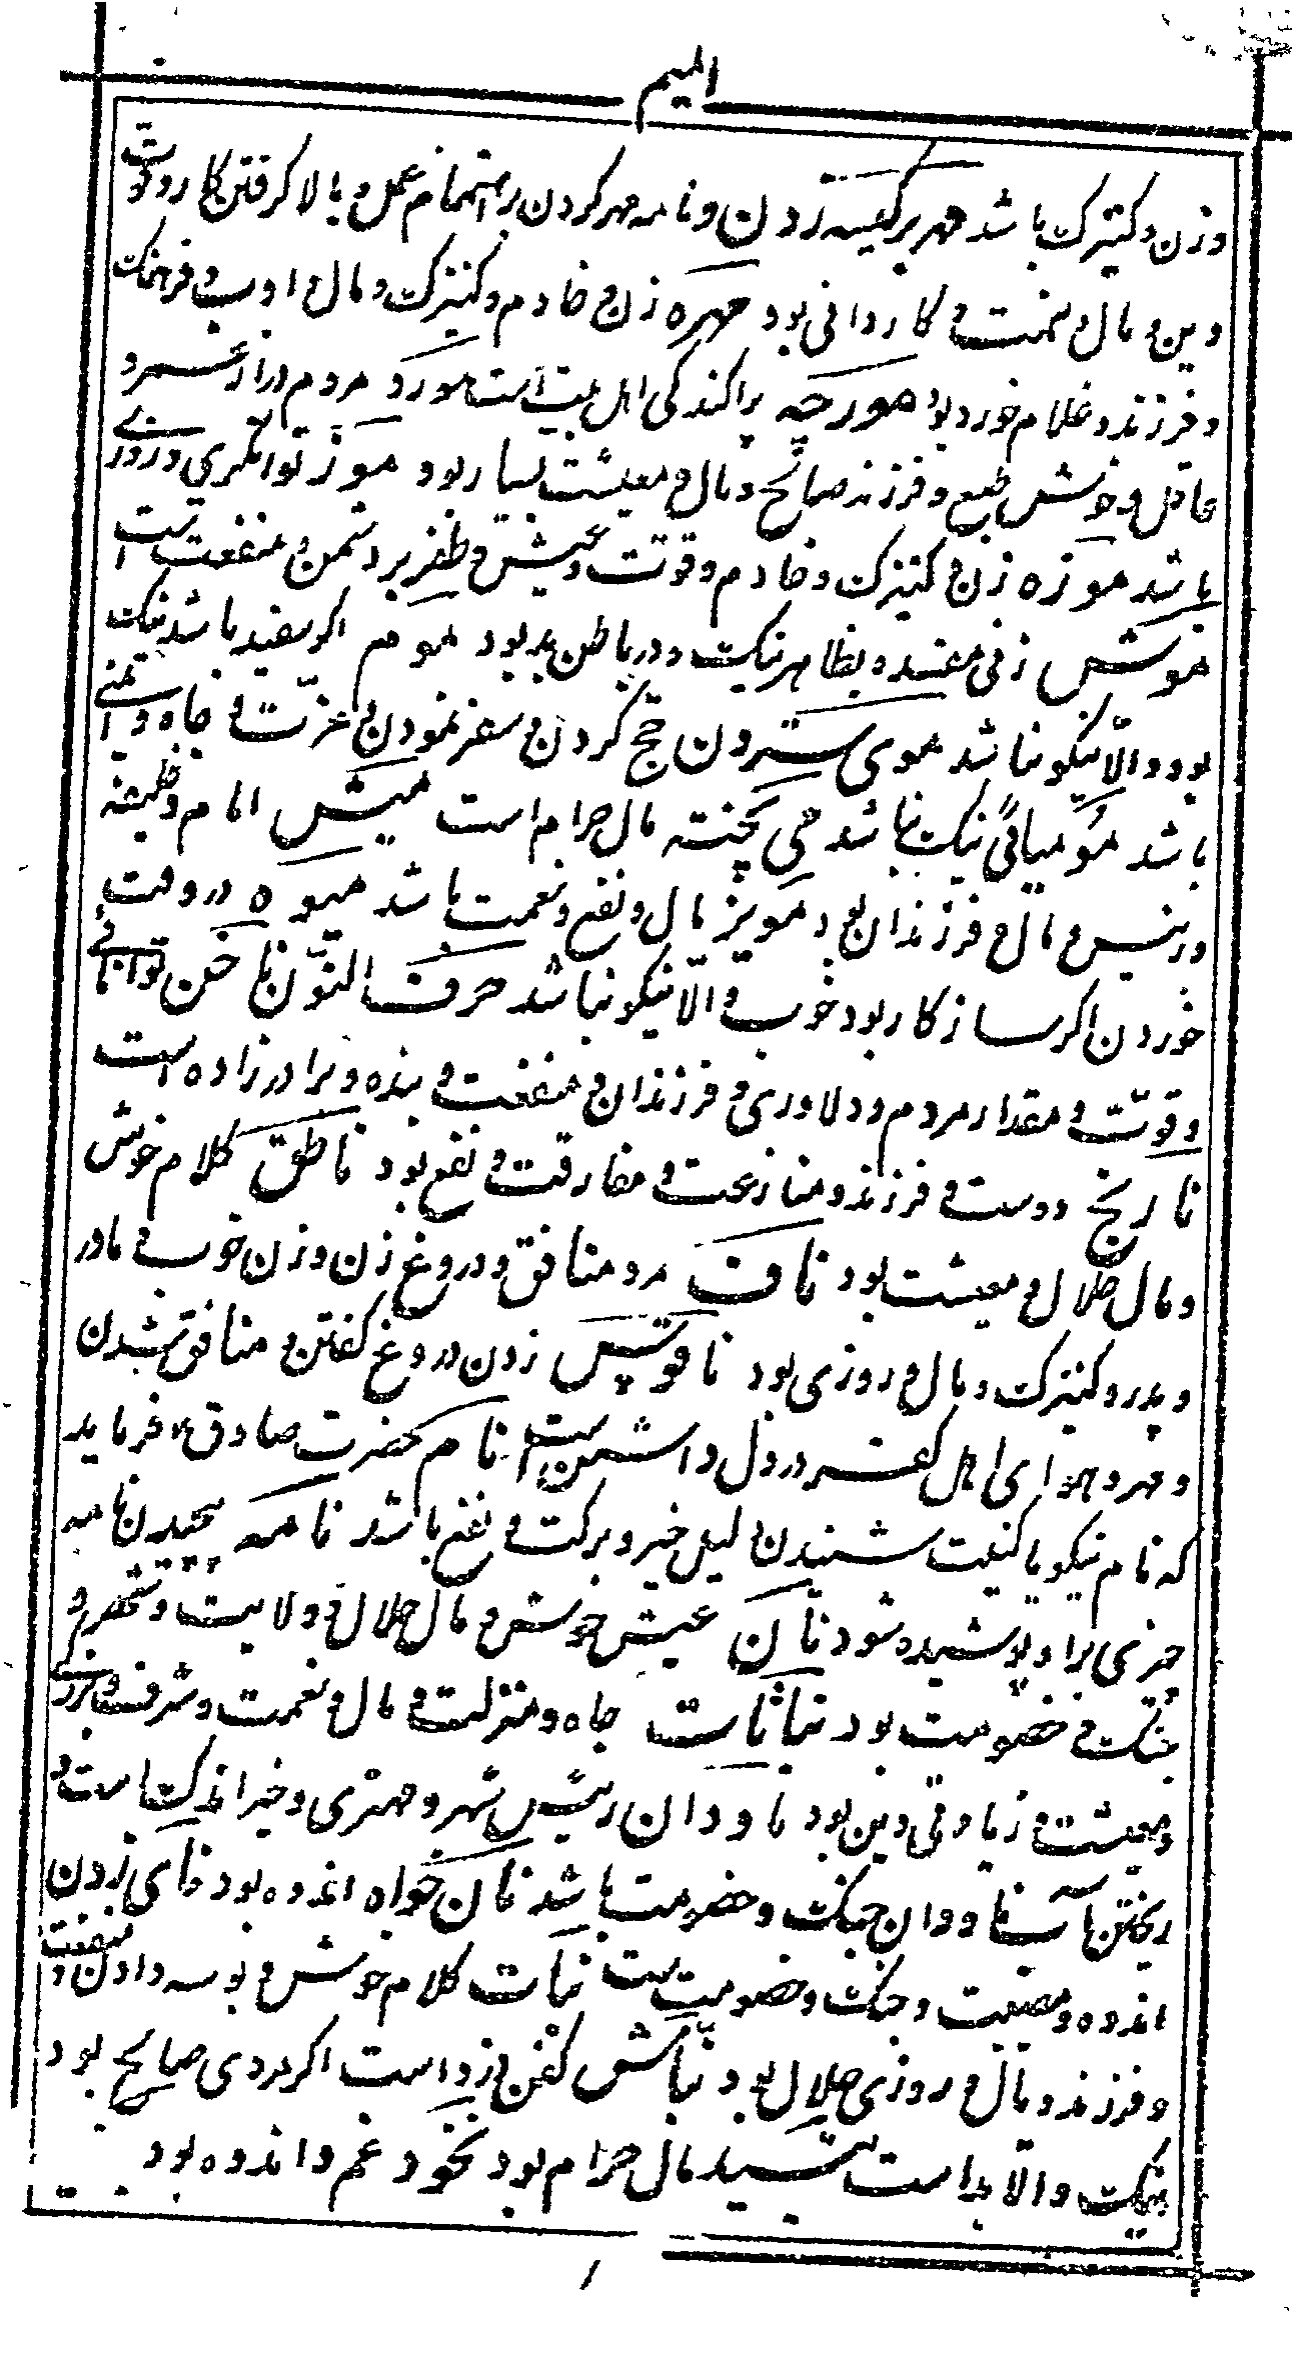 المیم
وزن و کنیزک باشد مهر بر کیسه زدن و نامه مهر کردن بر اهتمام عمل و بالا گرفتن کار و قوت
دین و مال و نعمت و کاردانی بود مهره زن و خادم و کنیزک و مال و ادب و فرهنک
و فرزند و غلام خورد بود مورچه پراکندکی اهل بیت است مورد مردم دراز عمر و
عاقل و خوش طبع و فرزند صالح و مال و معیشت بسیار بود موز توانگری و روزی
باشد موزه زن و کنیزک و خادم و قوت و عیش و ظفر بر دشمن و منفعت است
موش زنی مفسده بظاهر نیک و در باطن بد بود موم اکر سفید باشد نیک
بود و الّا نیکو نباشد موی ستردن حج کردن و سفر نمودن و عزّت و جاه و ایمنی
باشد مومیائی نیک نباشد می پخته مال حرام است میش امام و خلیفه
و رئیس و مال و فرزندان بود مویز مال و نفع و نعمت باشد میوه در وقت
خوردن اکر سازکار بود خوب و الّا نیکو نباشد حرف النّون ناخن توانائی
و قوّت و مقدار مردم و دلاوری و فرزندان و منفعت و بنده و برادرزاده است
نارنج دوست و فرزند و منازعت و مفارقت و نفع بود ناطق کلام خوش
و مال حلال و معیشت بود ناف مرد منافق و دروغ زن و زن خوب و مادر
و پدر و کنیزک و مال و روزی بود ناقوس زدن دروغ کفتن و منافق شدن
و مهر و هوای اهل کفر در دل داشتن است نام حضرت صادق ع فرماید
که نام نیکو یا کنیت شنیدن دلیل خیر و برکت و نفع باشد نامه پیچیدن نامه
چیزی براو پوشیده شود نان عیش خوش و مال حلال و ولایت و شهر و
جنک و خصومت بود نباتات جاه و منزلت و مال و نعمت و شرف و بزرکی
و معیشت و زیادتی دین بود ناودان رئیس شهر و مهتری و خیر اندک است و
ریختن آب ناودان جنک و خصومت باشد نان خواه اندوه بود نای زدن
اندوه و مصیبت و جنک و خصومت است نبات کلام خوش و بوسه دادن و منفعت
و فرزند و مال و روزی حلال بود نبّاش کفن دزد است اکر مردی صالح بود
نیک و الّا بد است نبید مال حرام بود نخود غم و اندوه بود